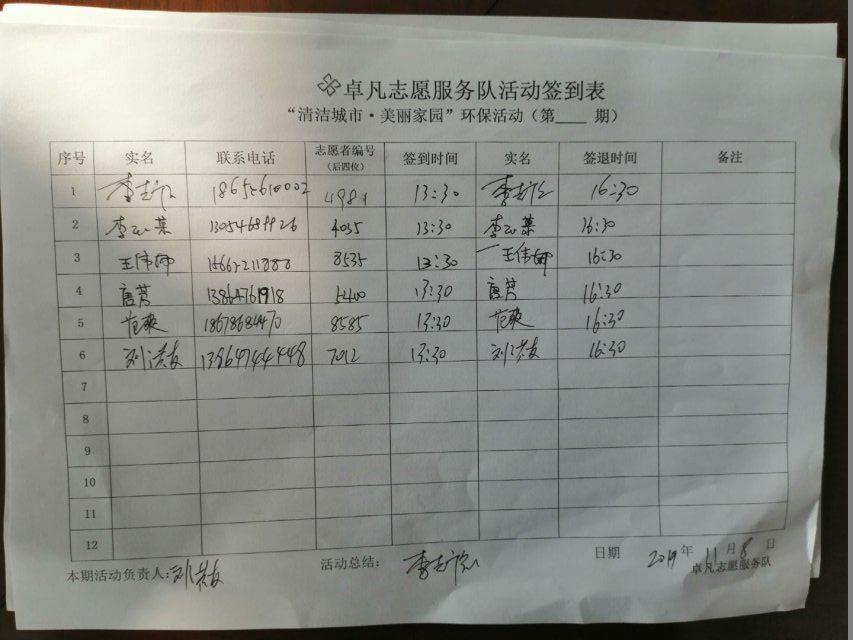 卓凡志愿服务队活动签到表
“清洁城市·美丽家园”环保活动（第____期）
序号 实名 联系电话 志愿者编号（后四位） 签到时间 实名 签退时间 备注
1 李 18656610002 13:30 李 16:30
2 李 4035 13:30 李 16:30
3 王伟娜 8535 13:30 王伟娜 16:30
4 唐芳 13864761918 5400 13:30 唐芳 16:30
5 范爽 18678684470 8585 13:30 范爽 16:30
6 刘洪友 13964744448 7012 13:30 刘洪友 16:30
7
8
9
10
11
12
本期活动负责人：刘洪友 活动总结： 李 日期 2019年11月8日
卓凡志愿服务队